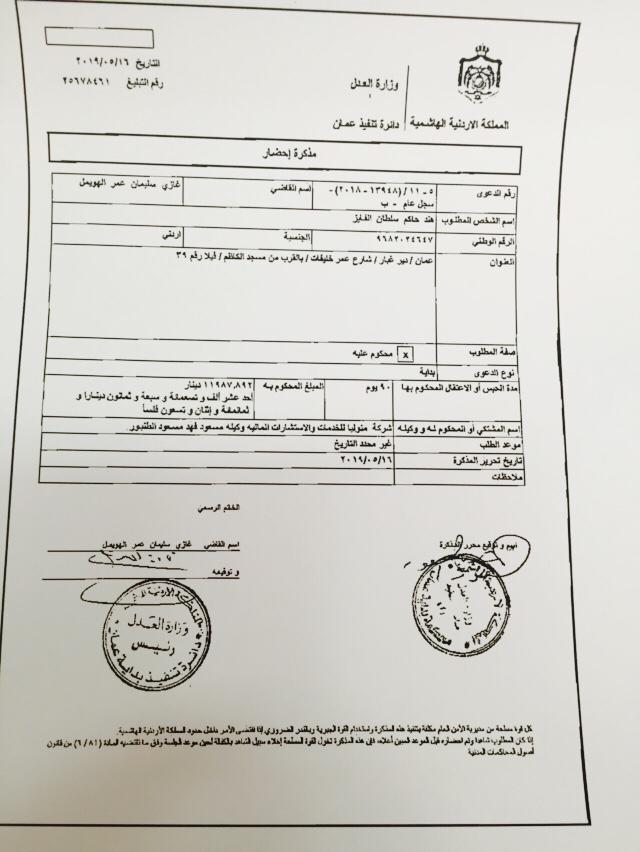 التاريخ ٢٠١٩/٠٥/١٦
رقم التبليغ ٢٥٦٧٨٤٦١
وزارة العدل
المملكة الاردنية الهاشمية
دائرة تنفيذ عمان
مذكرة إحضار
رقم الدعوى ٥ - ١١ / (١٣٩٤٨ - ٢٠١٨) - سجل عام - ب
اسم القاضي غازي سليمان عمر الهويمل
اسم الشخص المطلوب هند حاكم سلطان الفايز
الرقم الوطني ٩٦٨٢٠٢٤٦٤٧ الجنسية اردني
العنوان عمان / دير غبار / شارع عمر خليفات / بالقرب من مسجد الكاظم / فيلا رقم ٣٩
صفة المطلوب x محكوم عليه
نوع الدعوى بداية
مدة الحبس أو الاعتقال المحكوم بها ٩٠ يوم
المبلغ المحكوم به ١١٩٨٧,٨٩٢ دينار
احد عشر ألف و تسعمائة و سبعة و ثمانون دينارا و
ثمانمائة و إثنان و تسعون فلساً
اسم المشتكي أو المحكوم له و وكيله شركة منوليا للخدمات والاستشارات المالية وكيله مسعود فهد مسعود الطنبور
موعد الطلب غير محدد التاريخ
تاريخ تحرير المذكرة ٢٠١٩/٠٥/١٦
ملاحظات
الخاتم الرسمي
و توقيع محرر المذكرة
اسم القاضي غازي سليمان عمر الهويمل
و توقيعه
وزارة العدل
رئيس
دائرة تنفيذ بداية عمان
كل قوة مسلحة من مديرية الأمن العام مكلفة بتنفيذ هذه المذكرة واستخدام القوة الجبرية وبالقدر الضروري إذا اقتضى الأمر داخل حدود المملكة الأردنية الهاشمية.
إذا كان المطلوب شاهدا وتم احضاره قبل الموعد المبين أعلاه، فإن هذه المذكرة تخول القوة المسلحة إخلاء سبيل الشاهد بالكفالة لحين موعد الجلسة وفق ما تقتضيه المادة (٦/٨١) من قانون
أصول المحاكمات المدنية